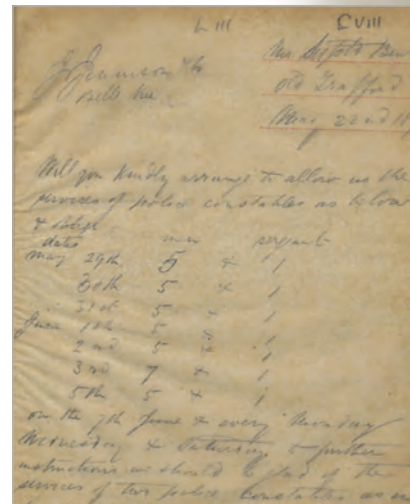 L III CVIII
Old Trafford
May 22nd
Will you kindly arrange to allow us the
services of police constables as below
&
dates men sergeant
May 29th 5 & 1
30th 5 & 1
31st 5 & 1
June 1st 5 & 1
2nd 5 & 1
3rd 7 & 1
5th 5 & 1
on the 7th June & every
Wednesday & Saturday to further
instructions we should be glad of the
services of two police constables as